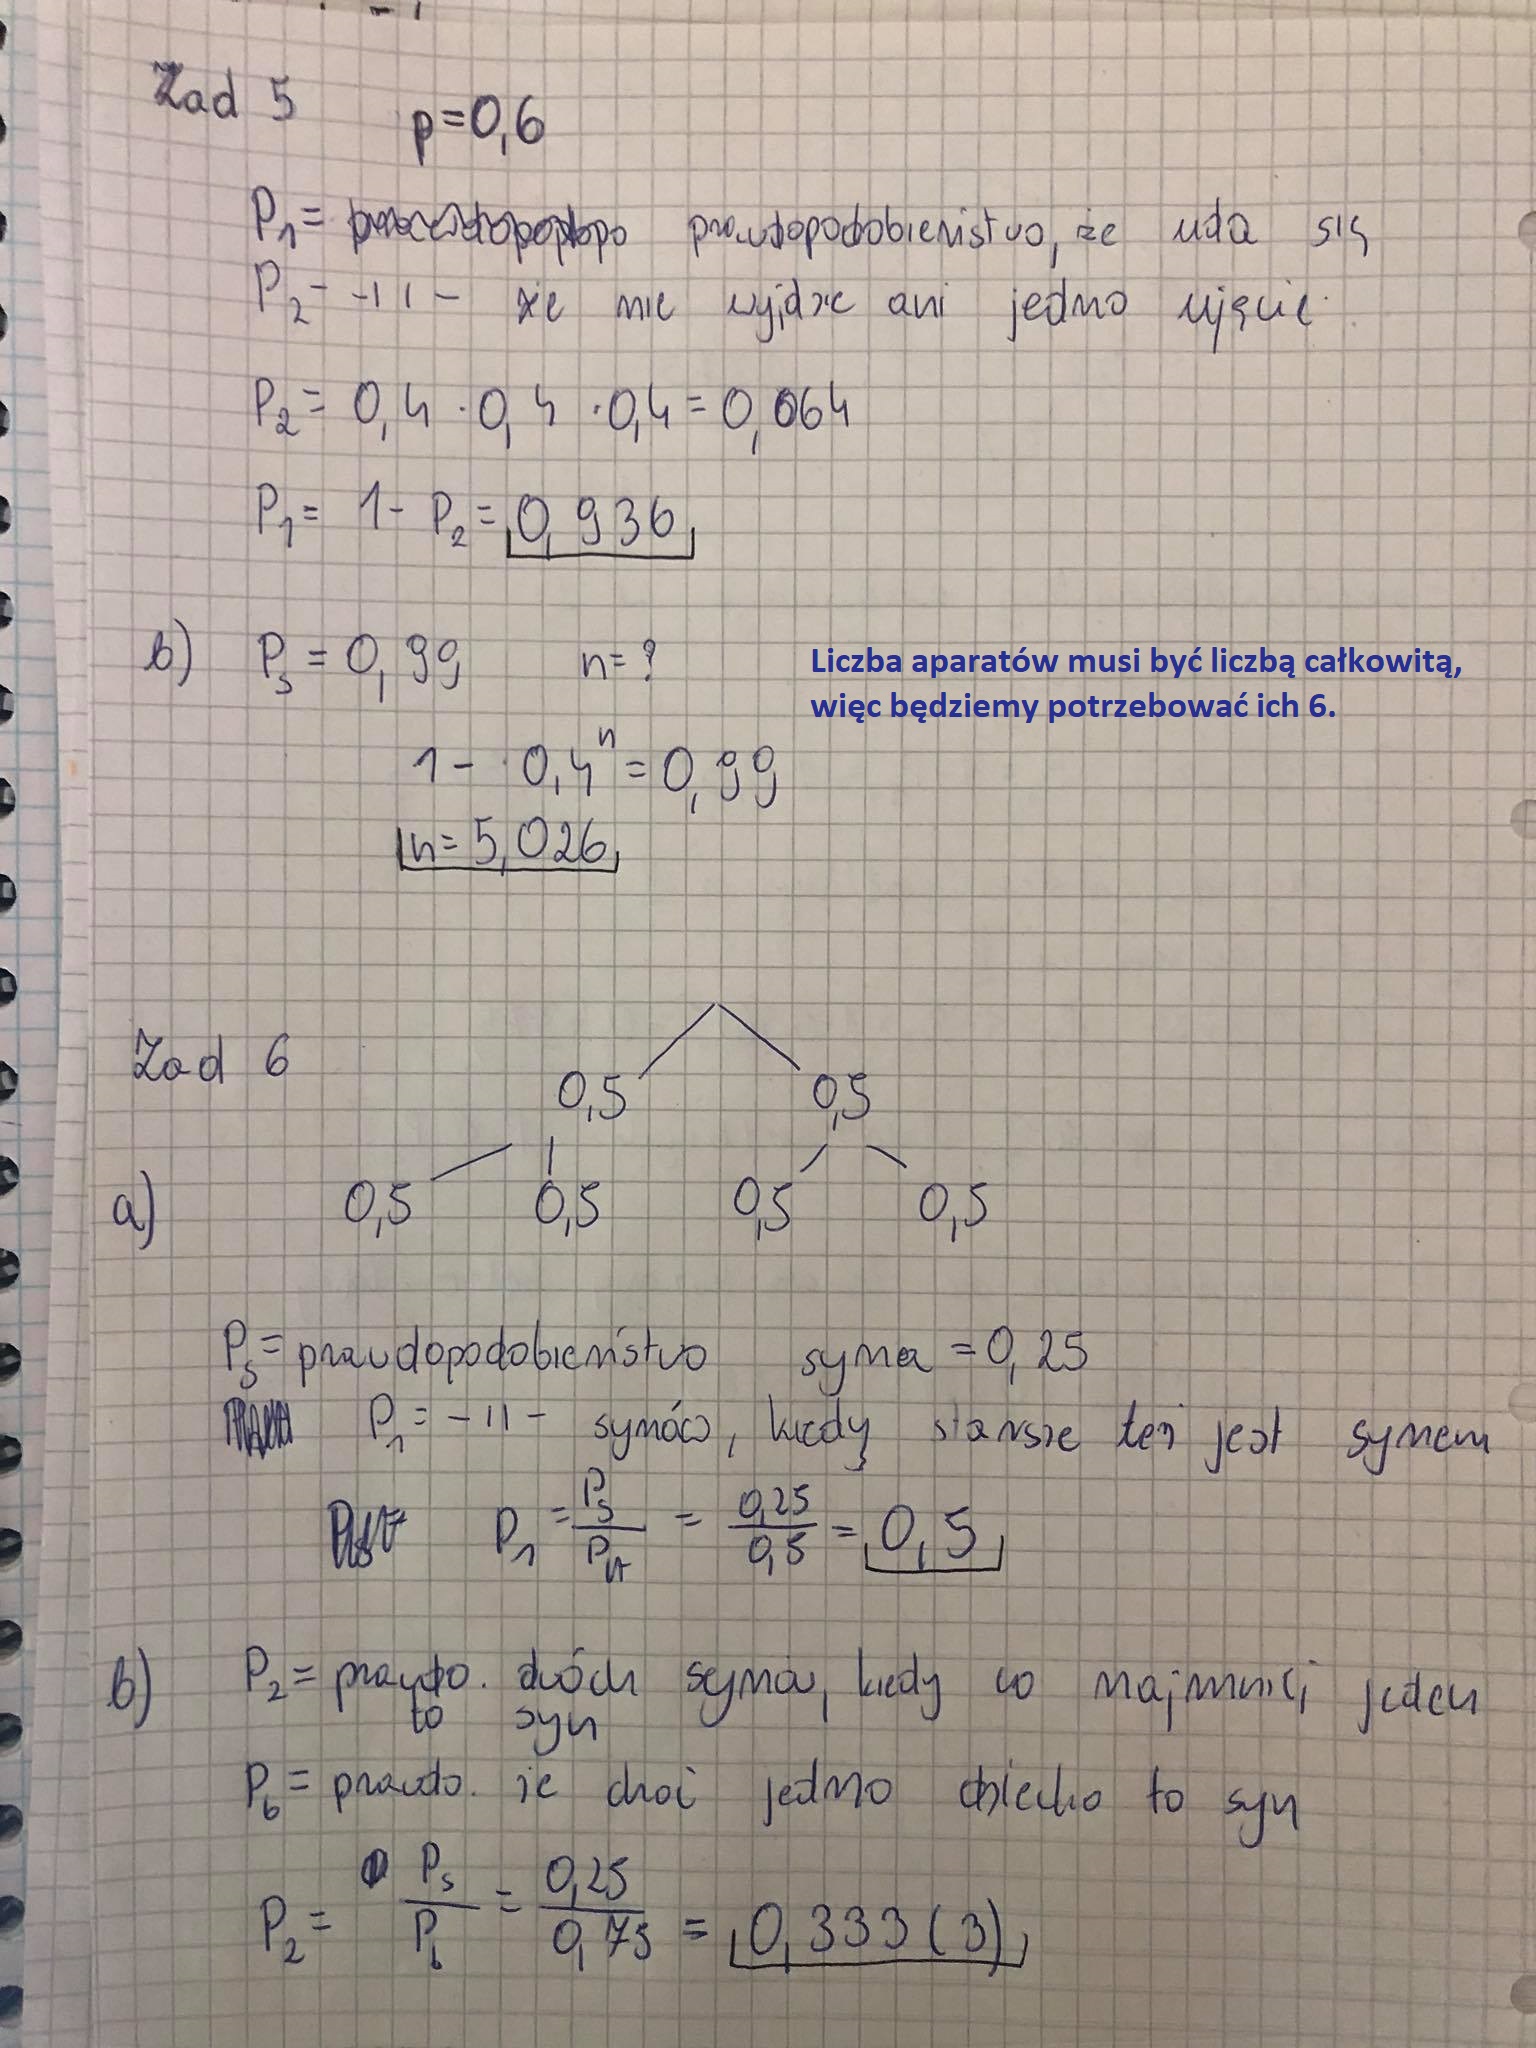 Zad 5 p=0,6
P1= prawdopodobieństwo, że uda się
P2- -11- że nie wyjdzie ani jedno ujęcie.
P2= 0,4 · 0,4 · 0,4 = 0,064
P1= 1- P2= 0,936
b) P3 = 0,99 n=?
Liczba aparatów musi być liczbą całkowitą,
więc będziemy potrzebować ich 6.
1- 0,4^n = 0,99
n= 5,026
Zad 6
0,5 0,5
a) 0,5 0,5 0,5 0,5
Ps= prawdopodobieństwo syna = 0,25
P1= -11- synów, kiedy starsze też jest synem
P1 = Ps/P = 0,25/0,5 = 0,5
b) P2= prawdo. dwóch syna, kiedy co najmniej jeden
to syn
Pb= prawdo. że choć jedno dziecko to syn
P2= Ps/Pb = 0,25/0,75 = 0,333(3)